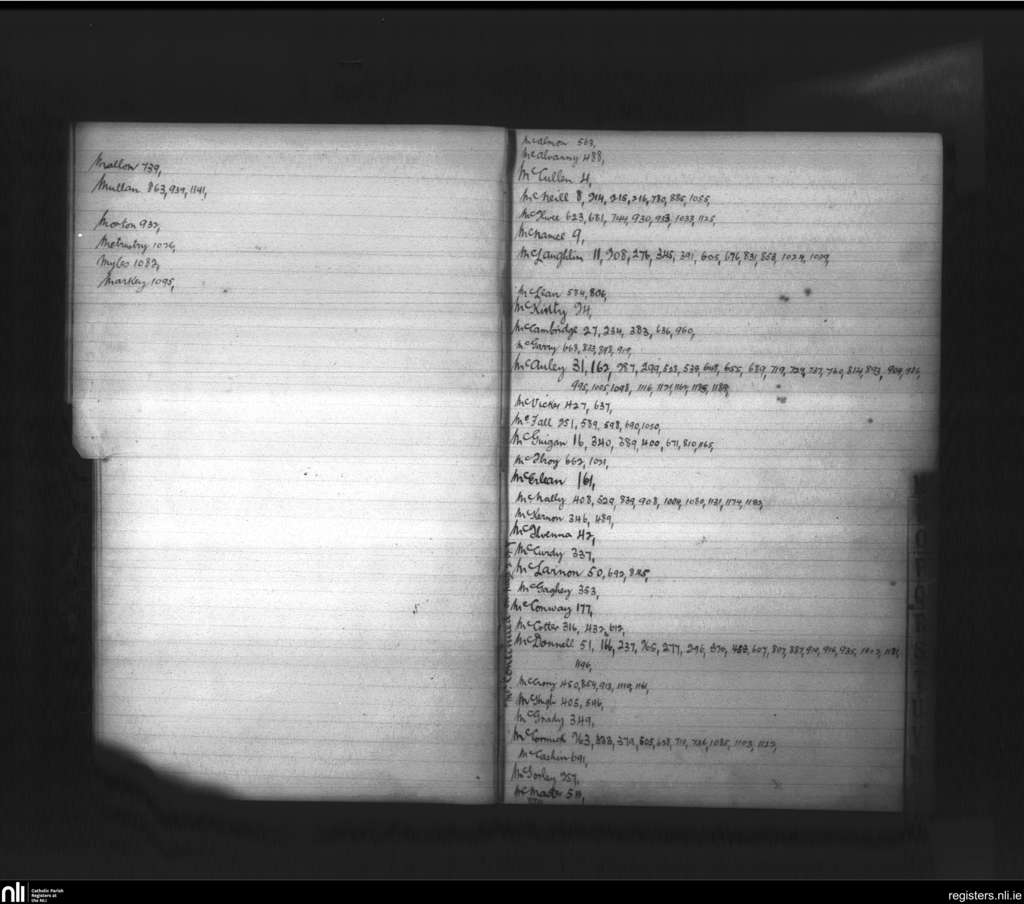 Mallon 739,
Mullan 863, 939, 1141,
Morton 932,
1026,
Myles 1082,
Markey 1095,
McAlmon 563,
McAlvanny 488,
McCullen 4,
McNeill 8, 214, 215, 216, 780, 885, 1055,
623, 681, 744, 930, 953, 1033, 1125,
McNamee 9,
McLaughlin 11, 208, 276, 345, 391, 605, 676, 831, 853, 1024, 1029,
McLean 584, 806,
McKinty 24,
McCambridge 27, 234, 383, 636, 960,
McGarry 668, 823, 898, 919,
McAuley 31, 162, 287, 299, 523, 539, 648, 655, 689, 719, 729, 737, 760, 814, 893, 909,
995, 1015, 1098, 1116, 1171, 1167, 1183, 1189,
McVicker 427, 637,
McFall 251, 589, 598, 690, 1050,
McGuigan 16, 340, 389, 400, 671, 810, 1165,
McIlroy 662, 1021,
McErlean 161,
McNally 408, 529, 839, 908, 1004, 1080, 1131, 1174, 1182,
McKernon 346, 489,
McIlvenna 42,
McCurdy 337,
McLarnon 50, 692, 845,
McGaghey 353,
McConway 177,
McCotter 316, 432, 612,
McDonnell 51, 166, 237, 265, 277, 296, 370, 453, 607, 807, 887, 910, 916, 935, 1102, 1181,
1196,
McCrory 450, 854, 913, 1119, 1161,
McHugh 403, 596,
McGrady 349,
McCormick 263, 333, 379, 505, 658, 711, 736, 1085, 1103, 1122,
McCashin 691,
McSorley 257,
McMaster 511,
nli
Catholic Parish
Registers at
the NLI
registers.nli.ie